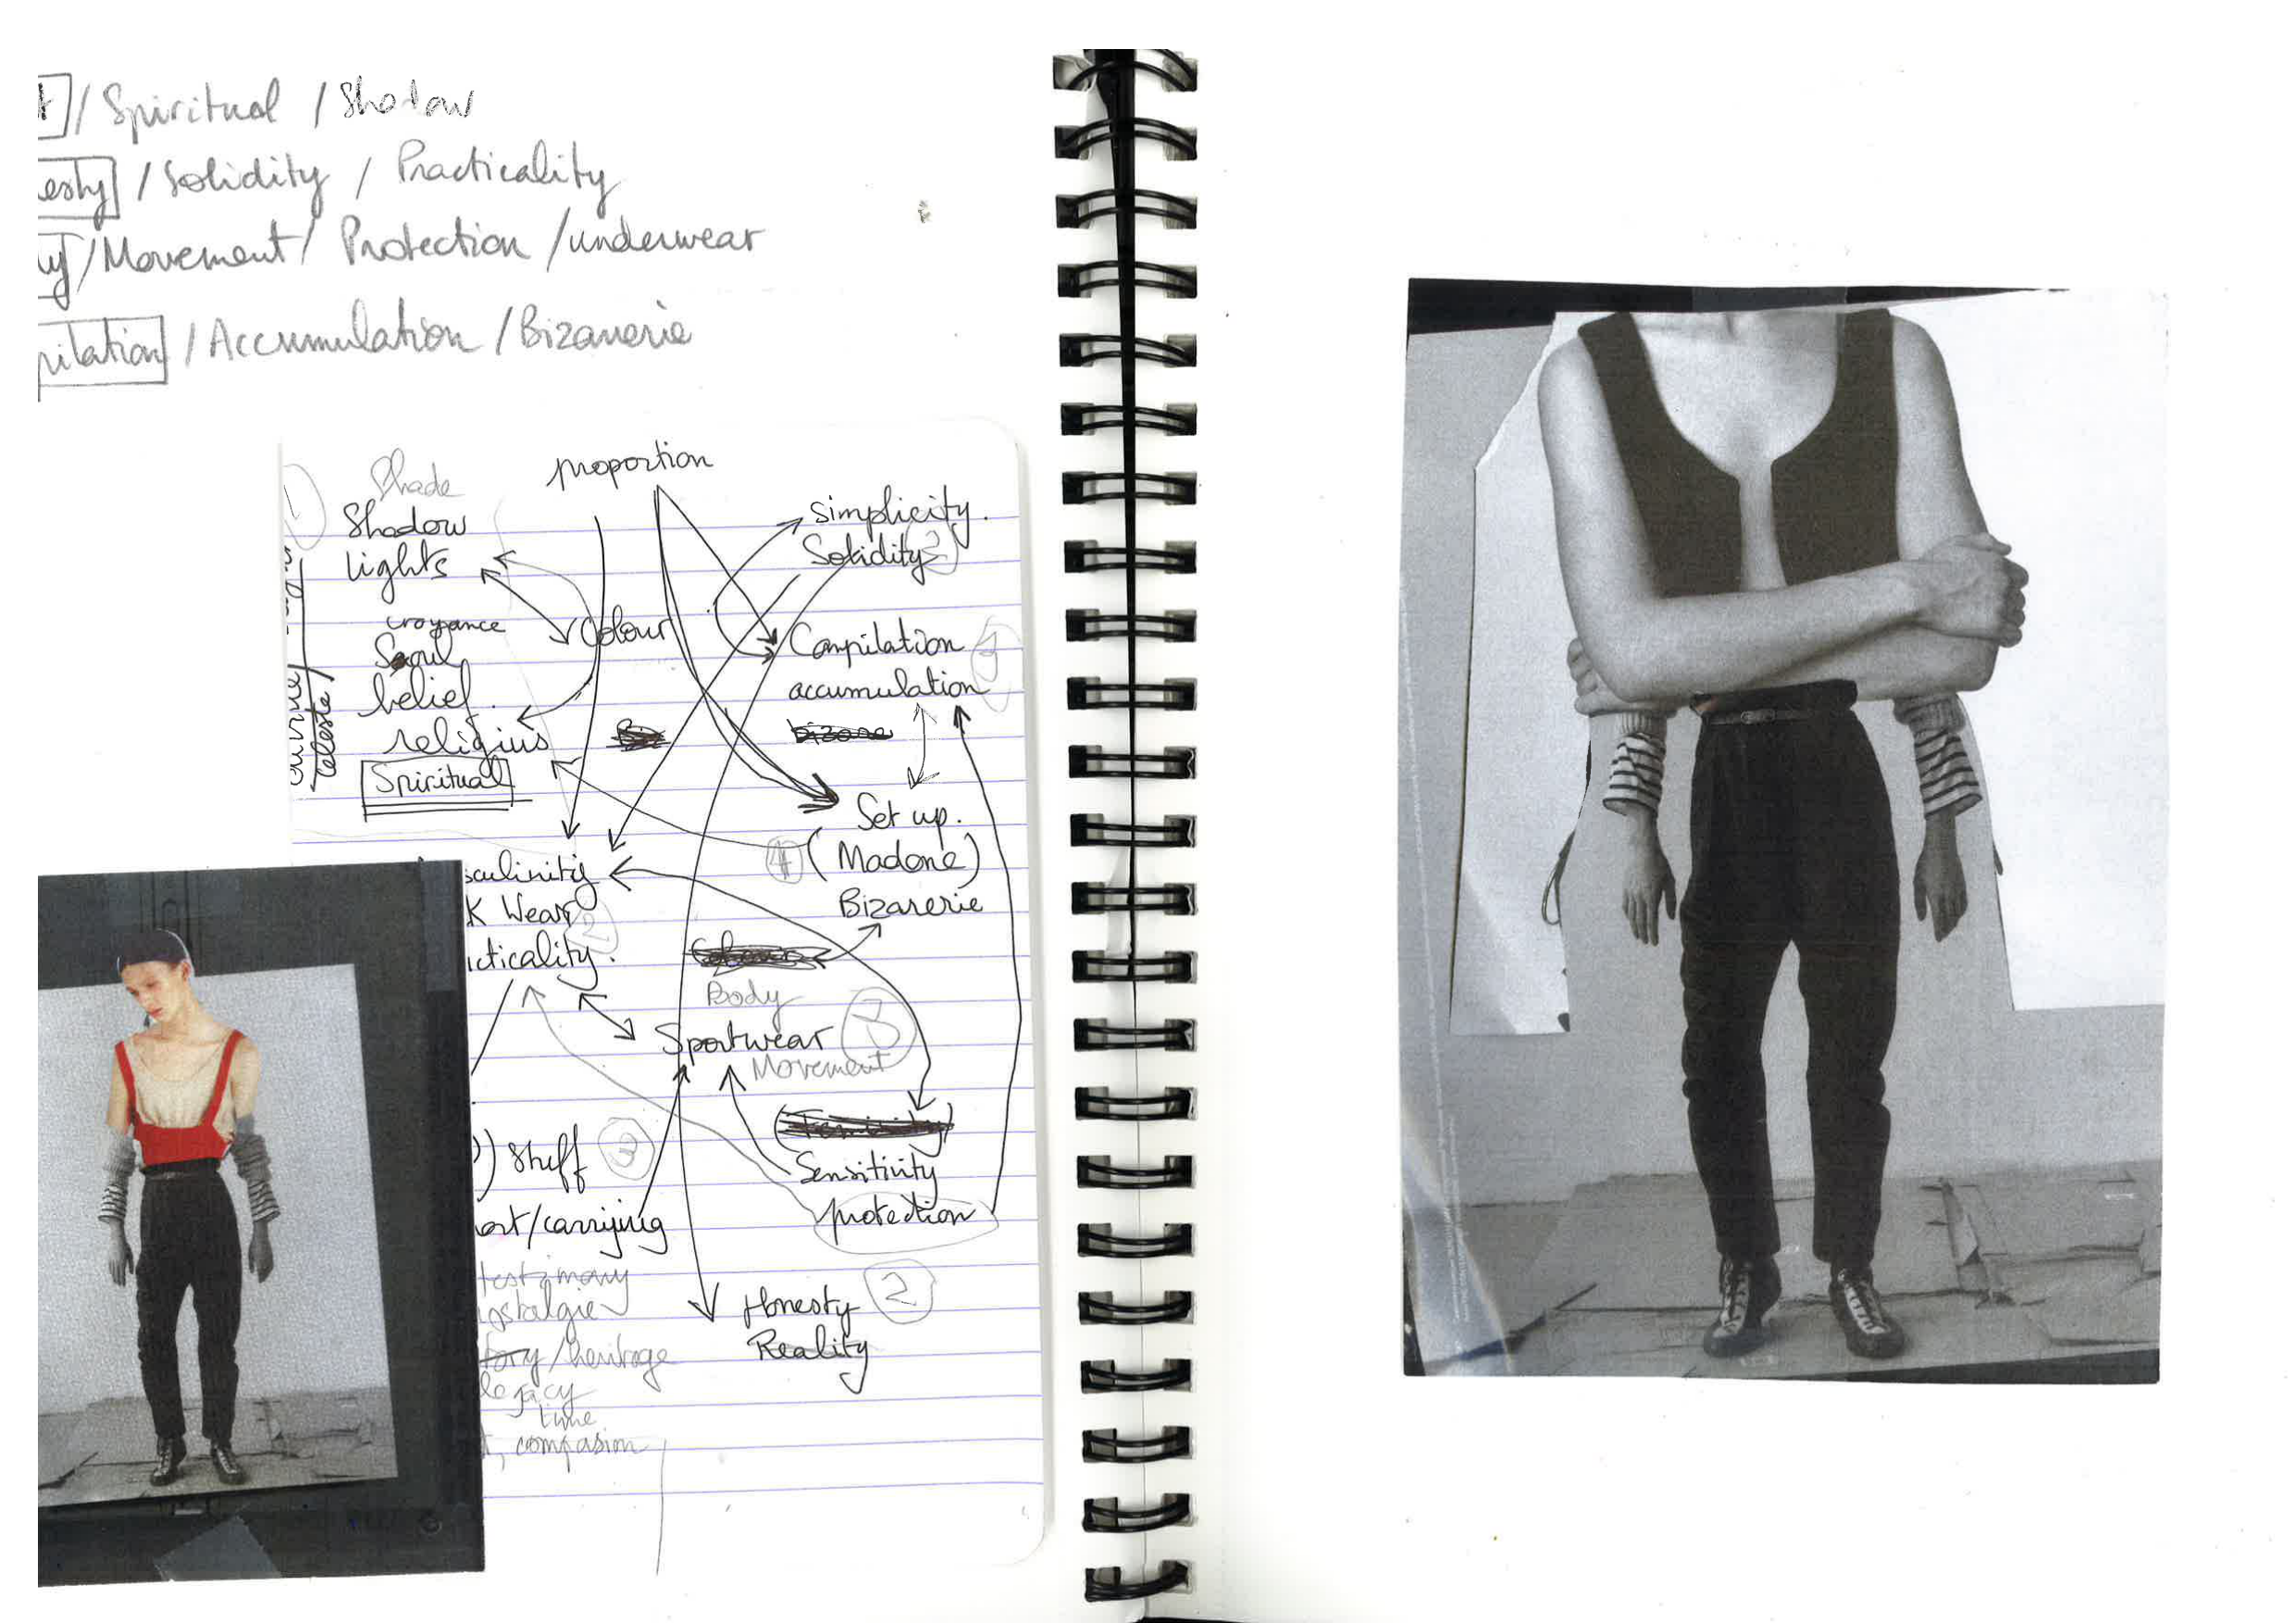 / Spiritual / Shadow
esty / Solidity / Practicality
/ Movement / Protection / underwear
pilation / Accumulation / Bizarrerie
1
Shade
Shadow
lights
proportion
simplicity.
Solidity 2
croyance
Soul
belief.
religius
Spiritual
Colour
celeste /
Compilation
accumulation
bizarre
Set up.
4 (Madone)
Bizarerie
sculinity
K Wear 2
cticality.
Body
Sportwear 3
Movement
(Feminity)
Sensitivity
protection
) Stuff 3
ort/carrijing
testimony
nostalgie
tory / heritage
legacy
time
t, compasion
Honesty 2
Reality